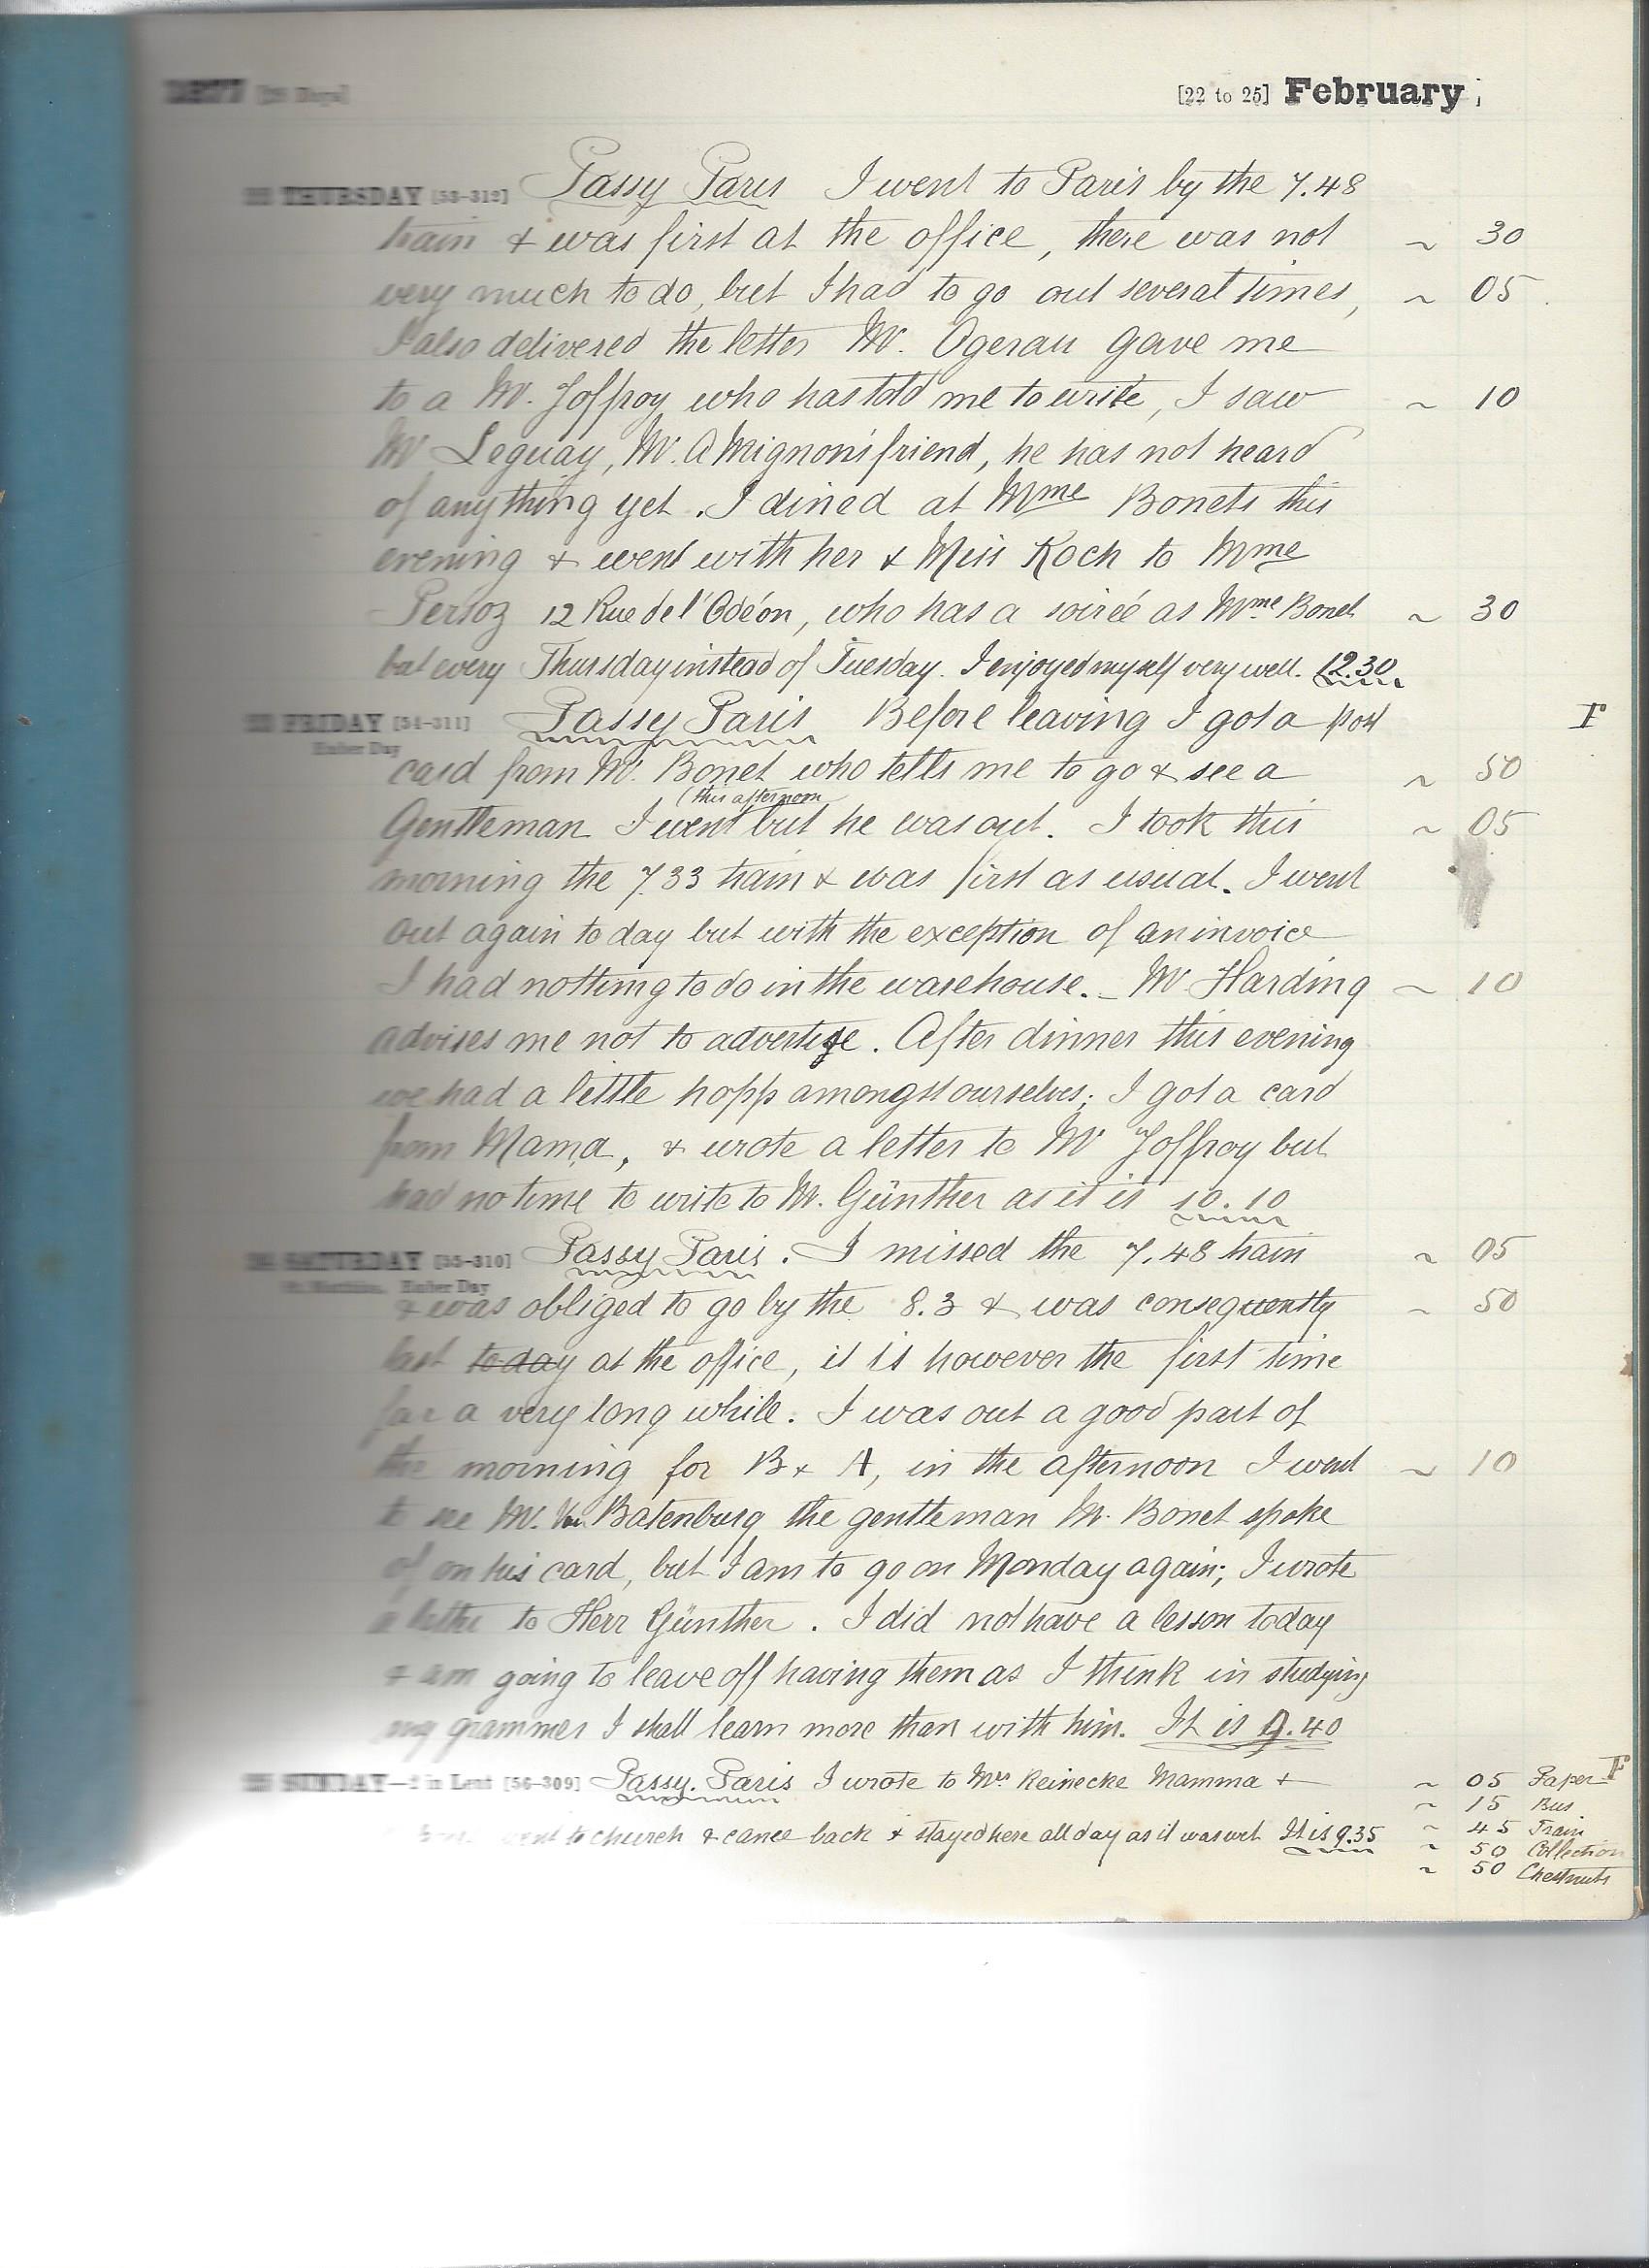 1877 [28 Days] [22 to 25] February
22 THURSDAY [53-312] Passy Paris I went to Paris by the 7.48
train & was first at the office, there was not ~ 30
very much to do, but I had to go out several times, ~ 05
I also delivered the letter Mr. Ogerau gave me
to a Mr. Joffroy who has told me to write, I saw ~ 10
Mr Leguay, Mr. A Mignon's friend, he has not heard
of anything yet. I dined at Mme Bonets this
evening & went with her & Miss Koch to Mme
Persoz 12 Rue de l'Odéon, who has a soireé as Mme Bonet ~ 30
but every Thursday instead of Tuesday. I enjoyed myself very well. 12.30
23 FRIDAY [54-311] Passy Paris Before leaving I got a post F
Ember Day
card from Mr. Bonet who tells me to go & see a ~ 50
(this afternoon
Gentleman I went but he was out. I took this ~ 05
morning the 7.33 train & was first as usual. I went
out again to day but with the exception of an invoice
I had nothing to do in the warehouse. _ Mr Harding ~ 10
advises me not to advertise. After dinner this evening
we had a little hopp amongst ourselves; I got a card
from Mama, & wrote a letter to Mr Joffroy but
had no time to write to Mr. Günther as it is 10.10
24 SATURDAY [55-310] Passy Paris. I missed the 7.48 train ~ 05
St. Matthias. Ember Day
& was obliged to go by the 8.3 & was consequently ~ 50
last to day at the office, it is however the first time
for a very long while. I was out a good part of
the morning for B & A, in the afternoon I went ~ 10
to see Mr. Van Batenburg the gentleman Mr. Bonet spoke
of on his card, but I am to go on Monday again; I wrote
a letter to Herr Günther. I did not have a lesson today
& am going to leave off having them as I think in studying
my grammer I shall learn more than with him. It is 9.40
25 SUNDAY—2 in Lent [56-309] Passy. Paris I wrote to Mrs Reinecke Mamma & ~ 05 Paper F
~ 15 Bus
went to church & came back & stayed here all day as it was wet It is 9.35 ~ 45 Train
~ 50 Collection
~ 50 Chestnuts